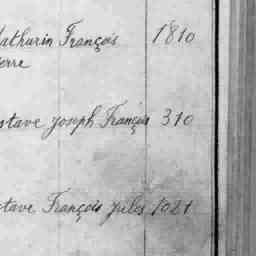 athurin François 1810
erre
stave Joseph François 310
stave François Jules 1021